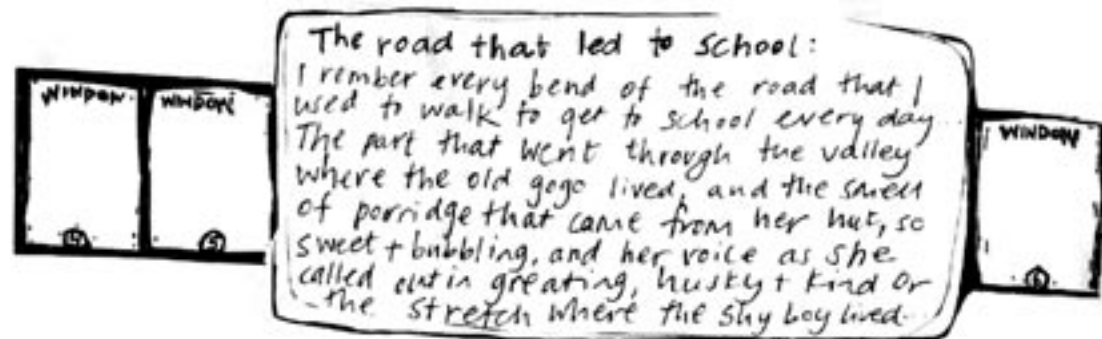 The road that led to school:
I rember every bend of the road that I
used to walk to get to school every day
The part that went through the valley
where the old gogo lived, and the smell
of porridge that came from her hut, so
sweet + bubbling, and her voice as she
called out in greating, husky + kind or
the stretch where the shy boy lived.
WINDOW
4
WINDOW
5
WINDOW
6